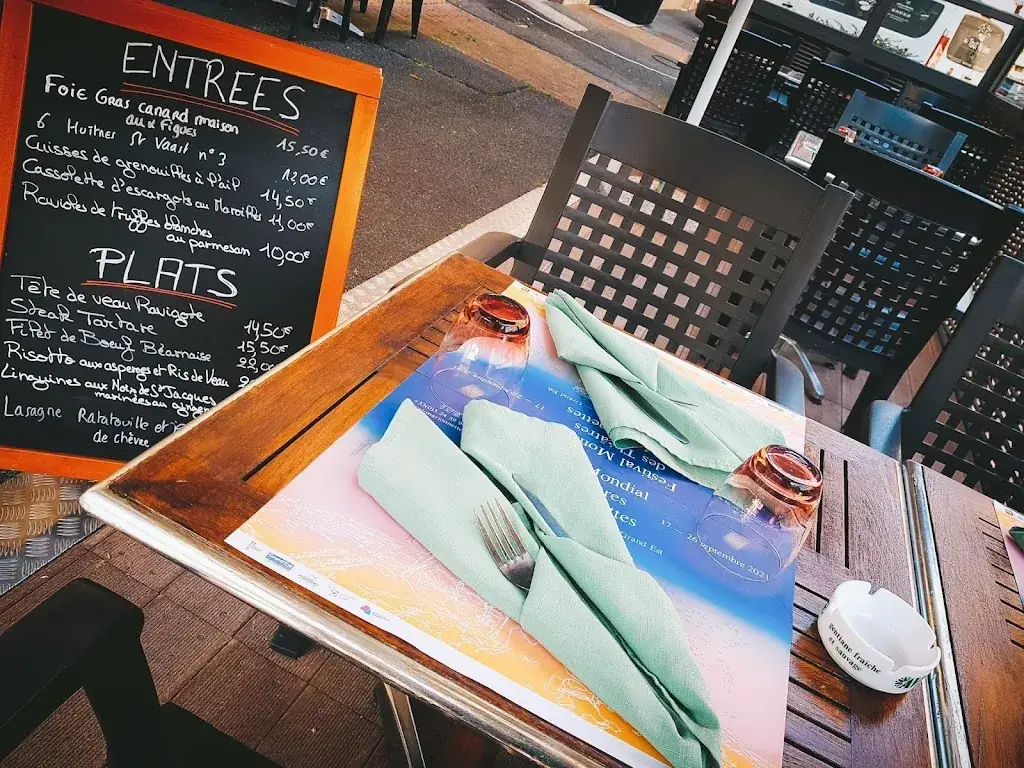 ENTREES
Foie Gras canard maison
aux Figues 15,50€
6 Huitres St Vaast n°3 12,00€
Cuisses de grenouilles à l'ail 14,50€
Cassolette d'escargots au Maroilles 11,00€
Ravioles de truffes blanches
au parmesan 10,00€
PLATS
Tête de veau Ravigote 14,50€
Steak Tartare 15,50€
Filet de Boeuf Béarnaise 22,00
Risotto aux asperges et Ris de Veau
Linguines aux Noix de St Jacques
marinées au
Lasagne Ratatouille et
de chèvre
Festival Mondial
des Théâtres
17 – 26 septembre 2021
Grand Est
gentiane fraîche
et sauvage